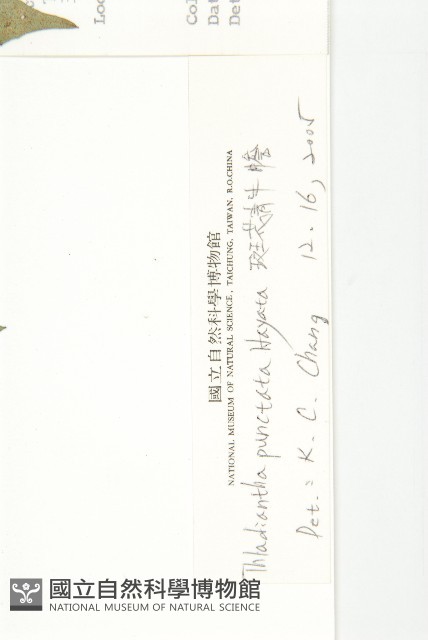 Loc
Col
Dat
Det
國立自然科學博物館
NATIONAL MUSEUM OF NATURAL SCIENCE, TAICHUNG, TAIWAN, R.O.CHINA
Thladiantha punctata Hayata 斑花青牛膽
Det.: K. C. Chang 12. 16, 2005
國立自然科學博物館
NATIONAL MUSEUM OF NATURAL SCIENCE